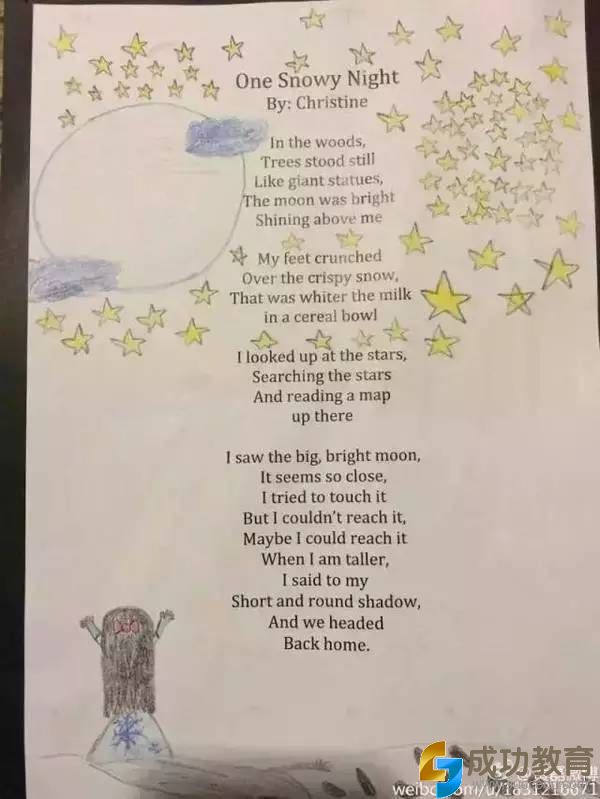 One Snowy Night
By: Christine
In the woods,
Trees stood still
Like giant statues,
The moon was bright
Shining above me
My feet crunched
Over the crispy snow,
That was whiter the milk
in a cereal bowl
I looked up at the stars,
Searching the stars
And reading a map
up there
I saw the big, bright moon,
It seems so close,
I tried to touch it
But I couldn't reach it,
Maybe I could reach it
When I am taller,
I said to my
Short and round shadow,
And we headed
Back home.
成功教育